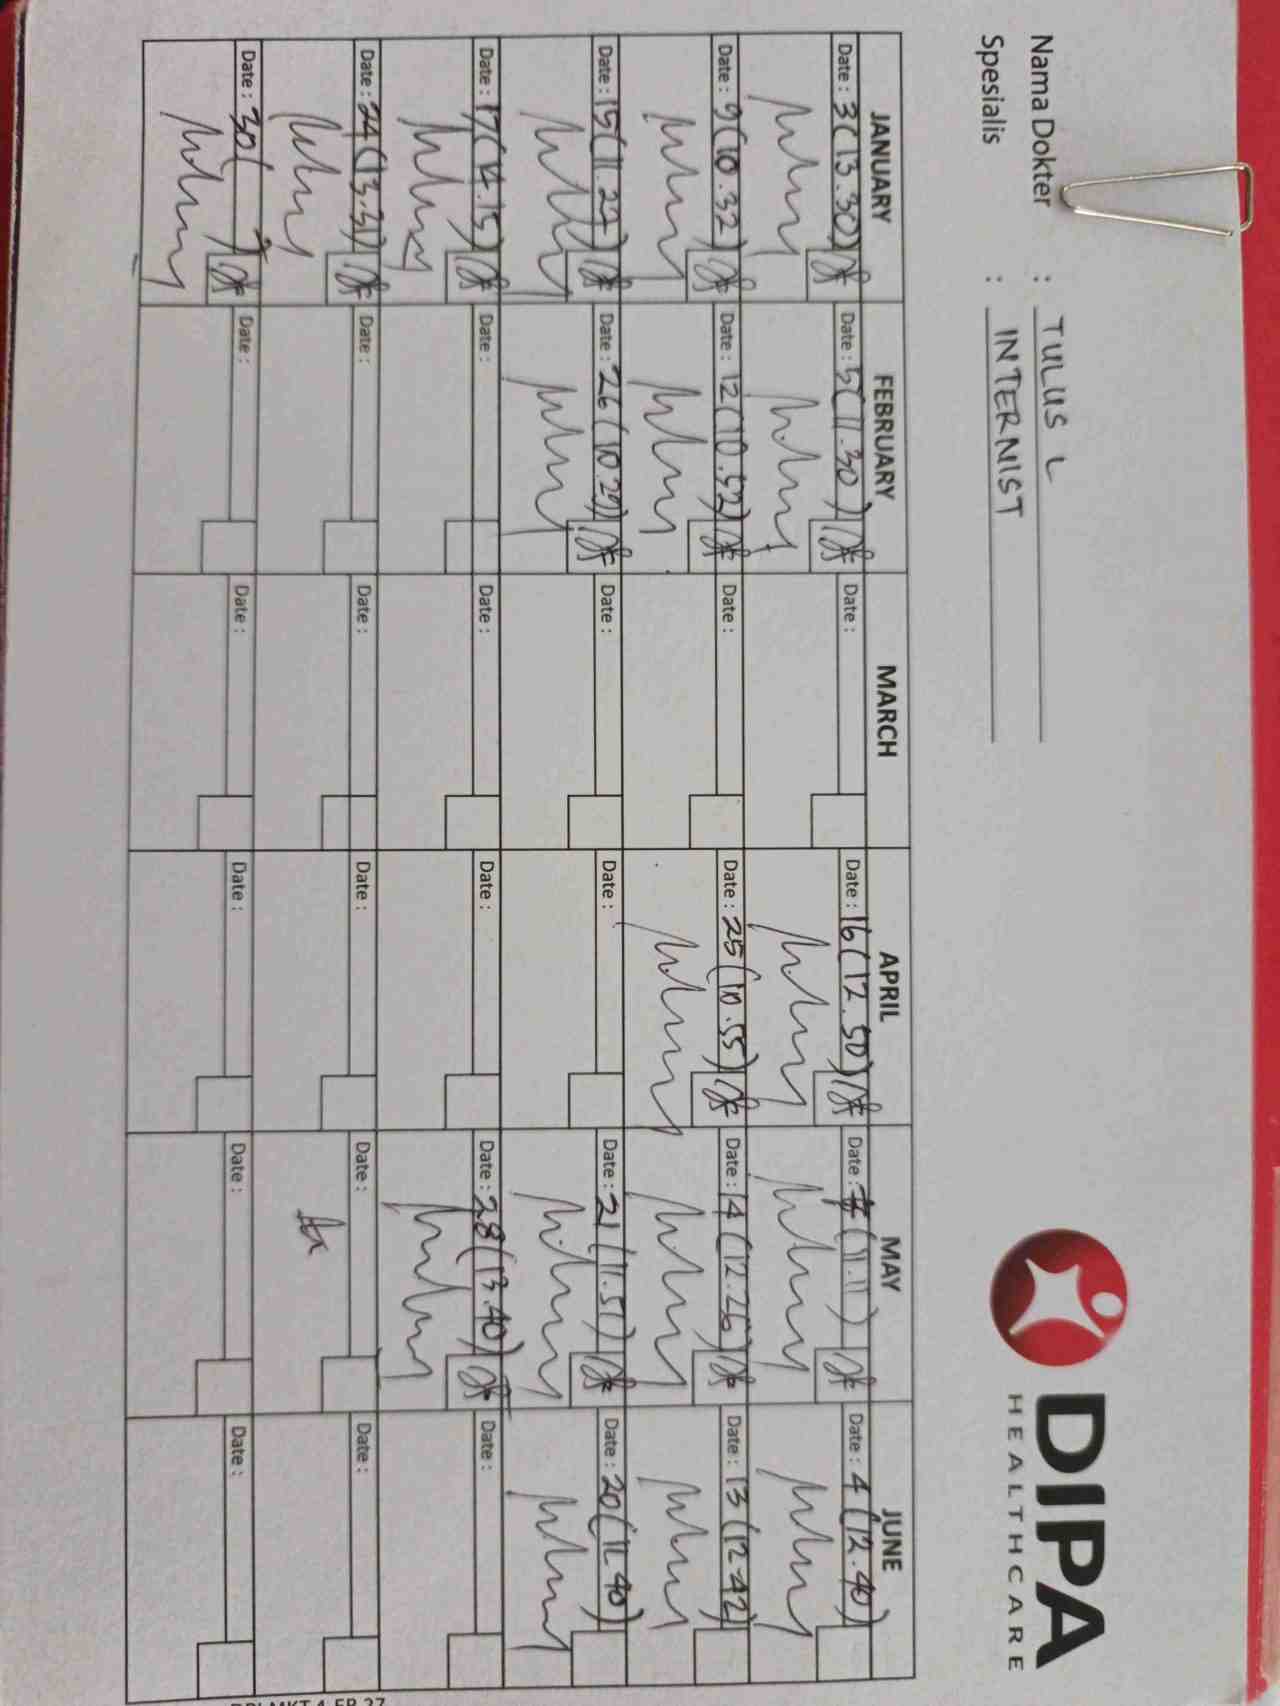 Nama Dokter : TULUS L
Spesialis : INTERNIST
DIPA
HEALTHCARE
JANUARY FEBRUARY MARCH APRIL MAY JUNE
Date : 3 (13.30) Date : 5 (11.30) Date : Date : 16 (12.50) Date : (11.11) Date : 4 (12.40)
Date : 9 (10.32) Date : 12 (10.52) Date : Date : 25 (10.55) Date : 14 (12.26) Date : 13 (12.42)
Date : 15 (11.22) Date : 26 (10.29) Date : Date : Date : 21 (11.51) Date : 20 (11.40)
Date : 17 (14.15) Date : Date : Date : Date : 28 (13.40) Date :
Date : 24 (13.31) Date : Date : Date : Date : Date :
Date : 30 ( ) Date : Date : Date : Date : Date :